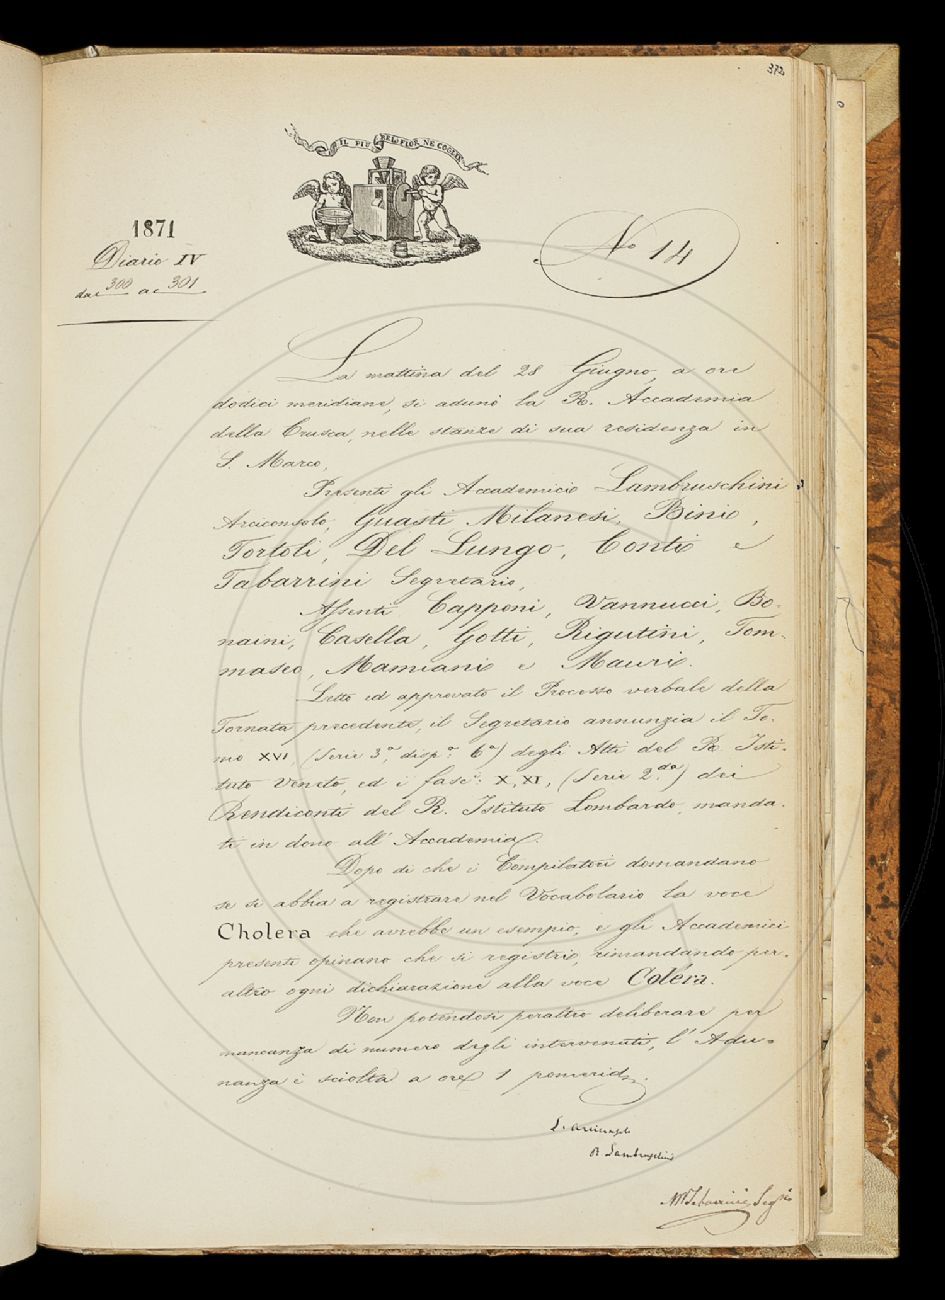 372
IL PIÙ BEL FIOR NE COGLIE
1871
Diario IV
da c 300 a c 301
No 14
La mattina del 28 Giugno, a ore
dodici meridiane, si adunò la R. Accademia
della Crusca nelle stanze di sua residenza in
S. Marco.
Presenti gli Accademici Lambruschini
Arciconsolo, Guasti Milanesi, Bini,
Tortoli, Del Lungo, Conti e
Tabarrini Segretario,
Assenti Capponi, Vannucci, Bo-
naini, Casella, Gotti, Rigutini, Tom-
maseo, Mamiani e Mauri.
Letto ed approvato il Processo verbale della
Tornata precedente, il Segretario annunzia il To-
mo XVI, (Serie 3a, dispa 6a) degli Atti del R. Isti-
tuto Veneto, ed i fasci X, XI, (Serie 2da) dei
Rendiconti del R. Istituto Lombardo, manda-
ti in dono all' Accademia.
Dopo di che i Compilatori domandano
se si abbia a registrare nel Vocabolario la voce
Cholera che avrebbe un esempio, e gli Accademici
presenti opinano che si registri, rimandando per-
altro ogni dichiarazione alla voce Colèra.
Non potendosi peraltro deliberare per
mancanza di numero degli intervenuti, l' Adu-
nanza è sciolta a ore 1 pomerid.
L' Arciconsolo
R Lambruschini
M Tabarrini Segrio